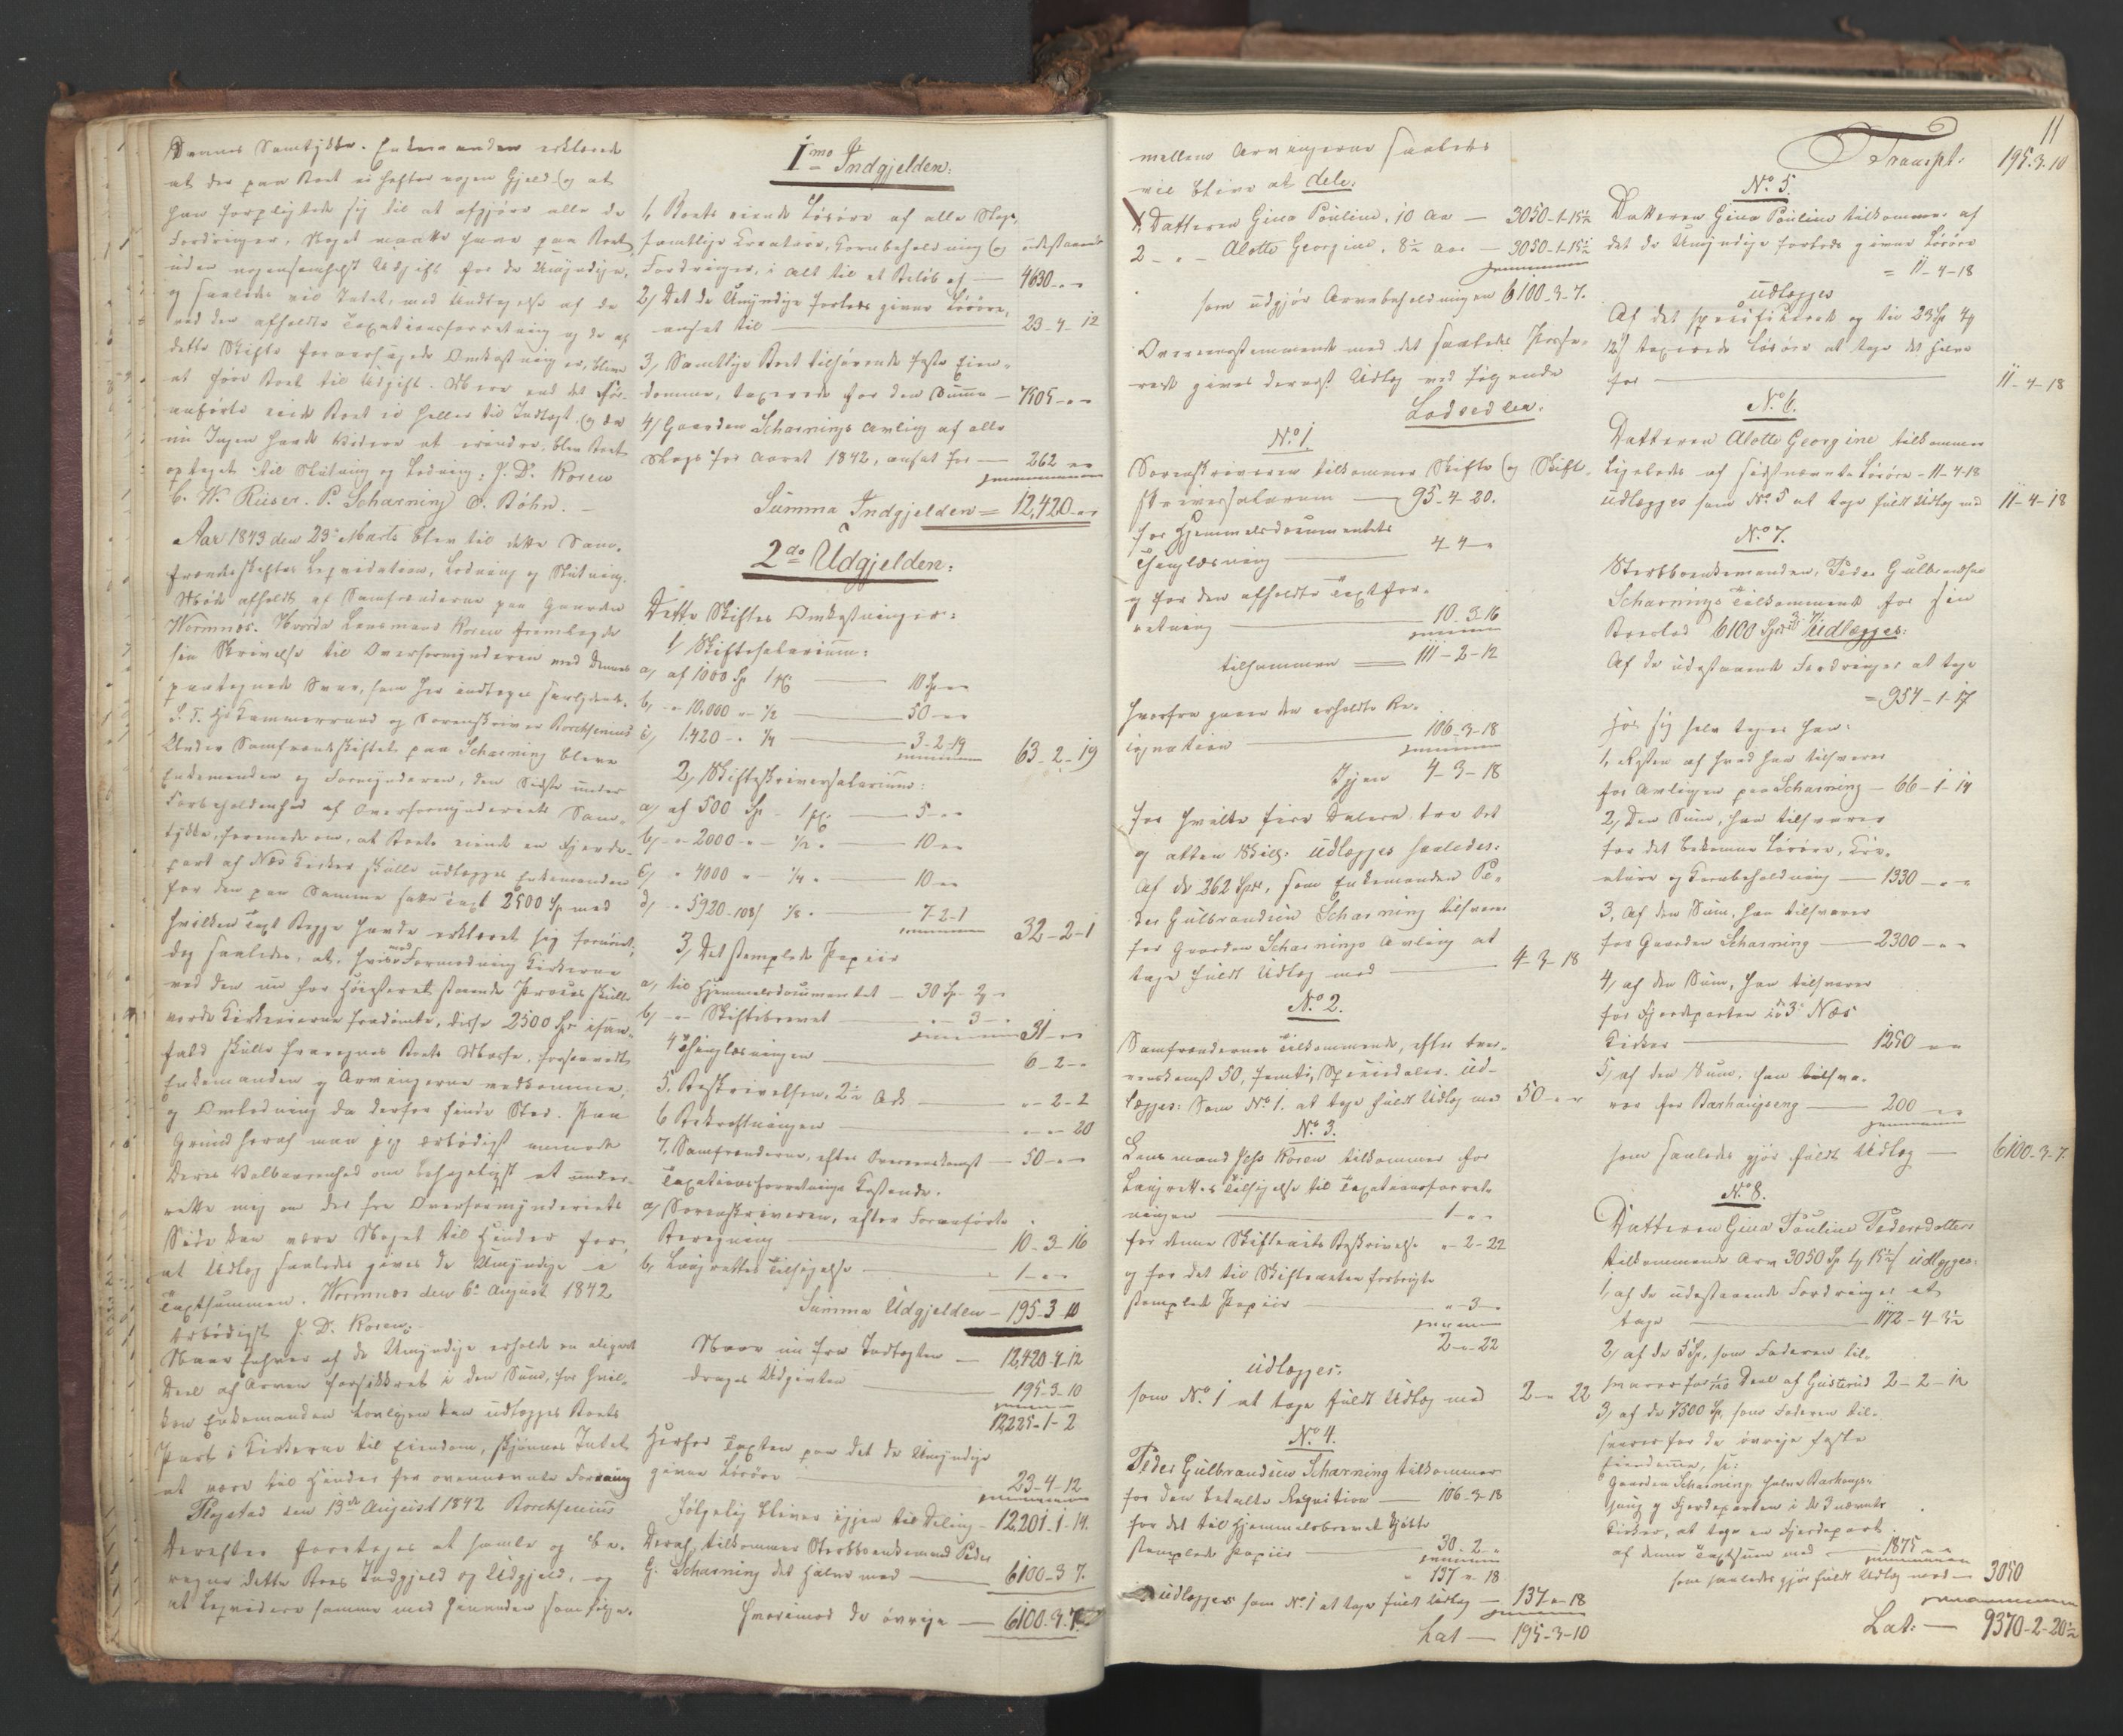 Dennes Samtykke. Enkemanden erklærede
at der paa Boet ei hefter nogen Gjeld og at
han forpligtede sig til at afgjøre alle de
Fordringer, Noget maatte have paa Boet
uden nogensomhelst Udgift for de Umyndige,
og saaledes vil Intet, med Undtagelse af de
ved den afholdte Taxationsforretning og de af
dette Skifte foraarsagede Omkostninger, blive
at føre Boet til Udgift. Mere end det for-
anførte eiede Boet ei heller til Indtægt. Og da
nu Ingen havde Videre at erindre, blev Boet
optaget til Slutning og Lodning. J. D. Koren
C. W. Rieser. P. Scharning O. Bøhn.
Aar 1843 den 23de Marts blev til dette Sam-
frændeskiftes Liqvidation, Lodning og Slutning
Møde afholdt af Samfrænderne paa Gaarden
Wormnæs. Hvorda Lensmand Koren fremlagde
sin Skrivelse til Overformynderen med Dennes
paategnede Svar, som her indtages saalydende.
S. T. Hr Kammerraad og Sorenskriver Borchsenius
Under Samfrændeskiftet paa Scharning bleve
Enkemanden og Formynderen, den Sidste under
Forbeholdenhed af Overformynderiets Sam-
tykke, forenede om, at Boets eiende en Fjerde-
part af Næs Kirker skulle udlægges Enkemanden
for den paa Samme satte Taxt 2500 Sp med
hvilken Taxt Begge havde erklæret sig fornøiet,
dog saaledes, at, hvis mod Formodning Kirkerne
ved den nu for Høiesteret staaende Proces skulle
vorde Kirkeeierne fradømte, disse 2500 Spd isaa-
fald skulle fragaaes Boets Masse, forsaavidt
Enkemanden og Arvingerne vedkomme,
og Omlodning da derfor finde Sted. Paa
Grund heraf maa jeg ærbødigst anmode
Deres Velbaarenhed om behageligst at under-
rette mig om der fra Overformynderiets
Side kan være Noget til Hinder for,
at Udlæg saaledes gives de Umyndige i
Taxtsummen. Wormnæs den 6te August 1842
Ærbødigst J. D. Koren.
Naar Enhver af de Umyndige erholde en aliqvot
Deel af Arven forsikkret i den Sum, for hvil-
ken Enkemanden lovligen kan udlægges Boets
Part i Kirkerne til Eiendom, skjønnes Intet
at være til Hinder for ovennævnte Forening
Flogstad den 13de August 1842 Borchsenius
Derefter foretoges at samle og be-
regne dette Boes Indgjeld og Udgjeld, og
at liqvidere samme med hinanden som følger.
1mo Indgjelden:
1, Boets eiende Løsøre af alle Slags,
samtlige Creature, Kornbeholdning og udestaaende
Fordringer, i Alt til et Beløb af — 4630 - -
2, Det de Umyndige forlods givne Løsøre,
ansat til — 23-4-12
3, Samtlige Boet tilhørende faste Eien-
domme, taxerede for den Summa — 7505 - -
4, Gaarden Scharnings Avling af alle
Slags for Aaret 1842, ansat for — 262 - -
Summa Indgjelden = 12,420 - -
2do Udgjelden:
Dette Skiftes Omkostninger:
1, Skiftesalarium:
a, af 1000 Sp 1 pC — 10 Sp - -
b, - 10,000 - - ½ — 50 - -
c, 1420 - - ¼ — 3-2-19 63-2-19
2, Skifteskriversalarium:
a, af 500 Sp - 1 pC. — 5 - -
b, - - 2000 - - ½ - — 10 - -
c, - 4000 - - ¼ - — 10 - -
d, - 5920-108 ⅛ - — 7-2-1 32-2-1
3, Det stemplede Papiir
a, til Hjemmelsdocumentet — 30 Sp-2 -
b, - - Skiftebrevet — - 3 - 31 - -
4 Thinglæsningen — 6-2 -
5. Beskrivelsen, 2½ Ark — - 2-2
6 Bekræftningen — - - 20
7, Samfrænderne, efter Overeenskomst — 50 - -
Taxationsforretnings Kostende.
a, Sorenskriveren, efter foranførte
Beregning — 10-3-16
b, Laugrettes Tilsigelse — - 1 - -
Summa Udgjelden — 195-3-10
Naar nu fra Indtægten — 12,420-4-12
drages Udgivten — 195-3-10
12225-1-2
Herfor Taxten paa det de Umyndige
givne Løsøre — 23-4-12
følgelig bliver igjen til Deling — 12,201-1-14.
Deraf tilkommer Sterbboenkemand Peder
G. Scharning det halve med — 6100-3 7.
Hvorimod de øvrige — 6100-3-7
11
mellem Arvingerne saaledes
vil blive at dele.
1, Datteren Gina Pouline, 10 Aar — 3050-1-15½
2 - - Alotte Georgine, 8½ Aar — 3050-1-15½
som udgjør Arvebeholdningen 6100-3-7.
Overeensstemmende med det saaledes Passe-
rede gives dernæst Udlæg ved følgende
Lodsedler.
No 1
Sorenskriveren tilkommer Skifte og Skifte-
skriversalarium — 95-4-20.
for Hjemmelsdocumentets
Thinglæsning — 4 4 -
og for den afholdte Taxtfor-
retning — 10-3-16
tilsammen — 111-2-12
hvorfra gaaer den erholdte Re-
qvisition — 106-3-18
Igjen 4-3-18
for hvilke fire Daler tre Ort
og atten Skill. udlægges saaledes:
Af de 262 Spdr, som Enkemanden Pe-
der Gulbrandsen Scharning tilsvarer
for Gaarden Scharnings Avling at
tage fuldt Udlæg med — 4-3-18
No. 2.
Samfrændernes Tilkommende, efter Over-
eenskomst 50, femti, Speciedaler. Ud-
lægges: Som No 1. at tage fuldt Udlæg med 50 - -
No. 3.
Lensmand Jess Koren tilkommer for
Laugrettes Tilsigelse til Taxationsforret-
ningen — 1 - -
for denne Skifteacts Beskrivelse - 2-22
og for det til Skifteacten forbrugte
stemplede Papiir — - 3 -
2 - 22
udlægges.
som No. 1 at tage fuldt Udlæg med 2 - 22
No. 4.
Peder Gulbrandsen Scharning tilkommer
for den betalte Reqvisition — 106-3-18
for det til Hjemmelsbrevet kjøbte
stemplede Papiir — 30-2 -
137 - 18
udlægges som No 1 at tage fuldt Udlæg — 137 - 18
Lat — 195-3-10
Transpt: 195.3.10
No. 5.
Datteren Gina Pouline tilkommer af
det de Umyndige forlods givne Løsøre
= 11-4-18
udlægges
Af det specificerede og til 23 Sp 4
12 taxerede Løsøre at tage det halve
for — 11-4-18
No. 6.
Datteren Alotte Georgine tilkommer
ligeledes af sidstnævnte Løsøre - 11-4-18
udlægges som No. 5 at tage fuldt Udlæg med 11-4-18
No. 7.
Sterbboenkemanden, Peder Gulbrandsen
Scharnings Tilkommende for sin
Boeslod 6100 Spd 3 7 Udlægges:
Af de udestaaende Fordringer at tage
= 954-1-17
hos sig selv tager han:
1, Resten af hvad han tilsvarer
for Avlingen paa Scharning — 66-1-14
2, Den Sum, han tilsvarer
for det bekomne Løsøre, Cre-
aturer og Kornbeholdning — 1330 - -
3, Af den Sum, han tilsvarer
for Gaarden Scharning — 2300 - -
4, af den Sum, han tilsvarer
for Fjerdeparten i de 3 Næs
Kirker — 1250 - -
5, af den Sum, han tilsva-
rer for Barhaugseng — 200 - -
som saaledes gjør fuldt Udlæg — 6100-3-7.
No. 8.
Datteren Gina Pouline Pedersdatters
tilkommende Arv 3050 Sp 1 15½ udlægges.
1, af de udestaaende Fordringer at
tage — 1172-4-3½
2, af de 5 Sp, som Faderen til-
svarer for 1/120 Deel af Gusterud 2-2-12
3, af de 7500 Sp, som Faderen til-
svarer for de øvrige faste
Eiendomme, sc:
Gaarden Scharning, halve Barhaugs-
eng og Fjerdeparten i de 3 nævnte
Kirker, at tage en Fjerdepart
af denne Taxtsum med — 1875 - -
som saaledes gjør fuldt Udlæg med — 3050
Lat: — 9370-2-20½